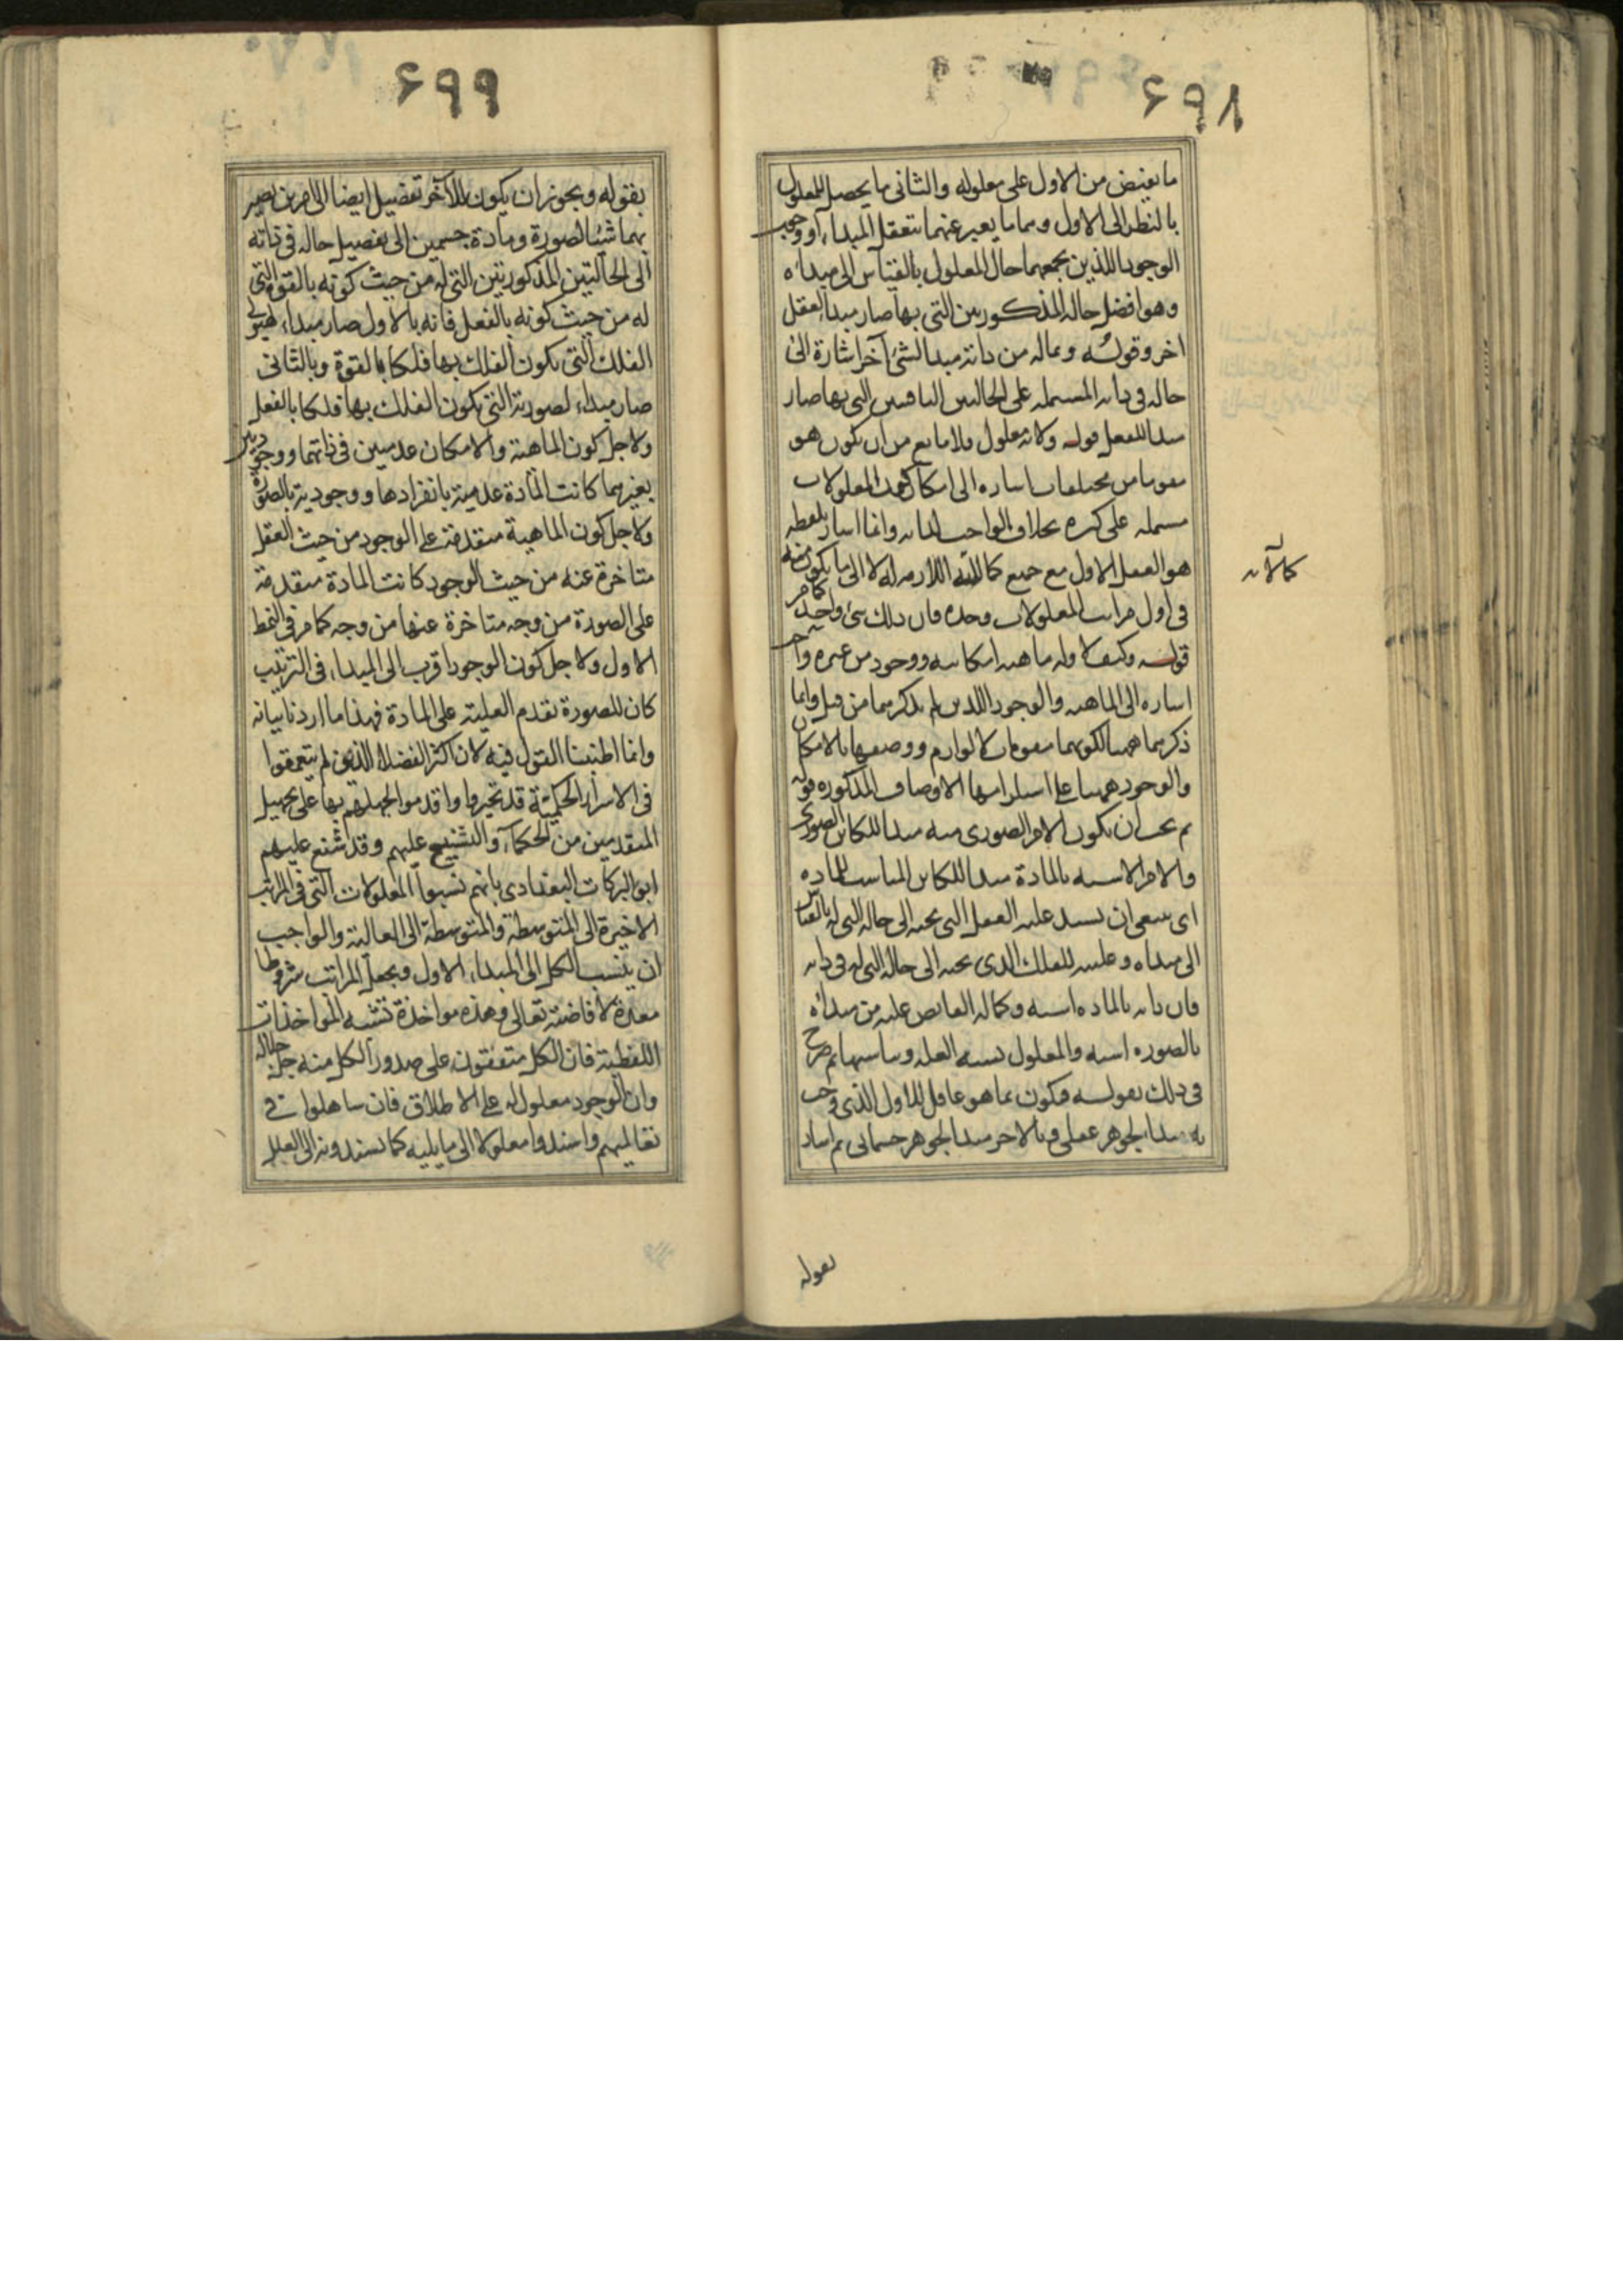 ۶۹۸
ما يفيض من الاول على معلوله والثانى ما يحصل للمعلول
بالنظر الى الاول وهما ما يعبر عنهما بتعقل المبداء ووجوب
الوجود اللذين يجمعهما حال المعلول بالقياس الى مبدائه
وهو افضل حاله المذكورين التى بها صار مبدا لعقل
اخر وقوله وبماله من ذاته مبدا لشئ آخر اشارة الى
حاله فى ذاته المشتمله على الحالتين الباقيتين التى بها صار
مبدا للفعل قوله ولانه معلول فلا مانع من ان يكون هو
مقوما من مختلفات اشاره الى امكان كون المعلولات
مشتمله على كثره بخلاف الواجب لذاته وانما اشار بلفظه
هو العقل الاول مع جميع كمالاته اللازمه له لا الى ما يكون منه
كمالاته
فى اول مراتب المعلولات وحده فان ذلك شئ واحد كما مر
قوله وكيف لا وله ماهيه امكانيه ووجود من غيره واجب
اشاره الى الماهيه والوجود اللذين لم يذكرهما من قبل وانما
ذكرهما ههنا لكونهما مقومان كالوازم ووصفهما بالامكان
والوجود ههنا على استلزامهما الاوصاف المذكوره قوله
ثم يجب ان يكون الامر الصورى منه مبدا للكائن الصورى
والامر الاشبه بالمادة مبدا للكائن المناسب للماده
اى ينبغى ان يسند عليه العقل التى تحته الى حاله التى له بالقياس
الى مبدائه وعليه للفلك الذى تحته الى حاله التى له فى ذاته
فان ذاته بالماده اشبه وكماله الفايض عليه من مبدائه
بالصوره اشبه والمعلول يشبه العله ويناسبها ثم صرح
فى ذلك بقوله فيكون بما هو عاقل للاول الذى وجب
به مبدا لجوهر عقلى وبالاخر مبدا لجوهر جسمانى ثم اشار
بقوله
۶۹۹
بقوله ويجوز ان يكون للآخر تفصيل ايضا الى امرين يصير
بهما شيئا لصورة ومادة جسمين الى تفصيل حاله فى ذاته
الى الحالتين المذكورتين التى له من حيث كونه بالقوة والتى
له من حيث كونه بالفعل فانه بالاول صار مبداء لهيولى
الفلك التى يكون الفلك بها فلكا بالقوة وبالثانى
صار مبداء لصورته التى يكون الفلك بها فلكا بالفعل
ولاجل كون الماهية والامكان عدميين فى ذاتهما ووجوديين
بغيرهما كانت المادة عدمية بانفرادها ووجودية بالصورة
ولاجل كون الماهية متقدمة على الوجود من حيث العقل
متاخرة عنه من حيث الوجود كانت المادة متقدمة
على الصورة من وجه متاخرة عنها من وجه كما مر فى النمط
الاول ولاجل كون الوجود اقرب الى المبداء فى الترتيب
كان للصورة تقدم العلية على المادة فهذا ما اردنا بيانه
وانما اطنبنا القول فيه لان اكثر الفضلاء الذين لم يتعمقوا
فى الاسرار الحكمية قد تحيروا واقدموا لجهلهم بها على تجهيل
المتقدمين من الحكماء والتشنيع عليهم وقد شنع عليهم
ابو البركات البغدادى بانهم نسبوا المعلولات التى فى المراتب
الاخيرة الى المتوسطة والمتوسطة الى العالية والواجب
ان ينسب الكل الى المبداء الاول ويجعل المراتب شروطا
معدة لافاضته تعالى وهذه مواخذة تشبه المواخذات
اللفظية فان الكل متفقون على صدور الكل منه جل جلاله
وان الوجود معلول له على الاطلاق فان ساهلوا فى
تعاليمهم واسندوا معلولا الى ما يليه كما يسندونه الى العلل